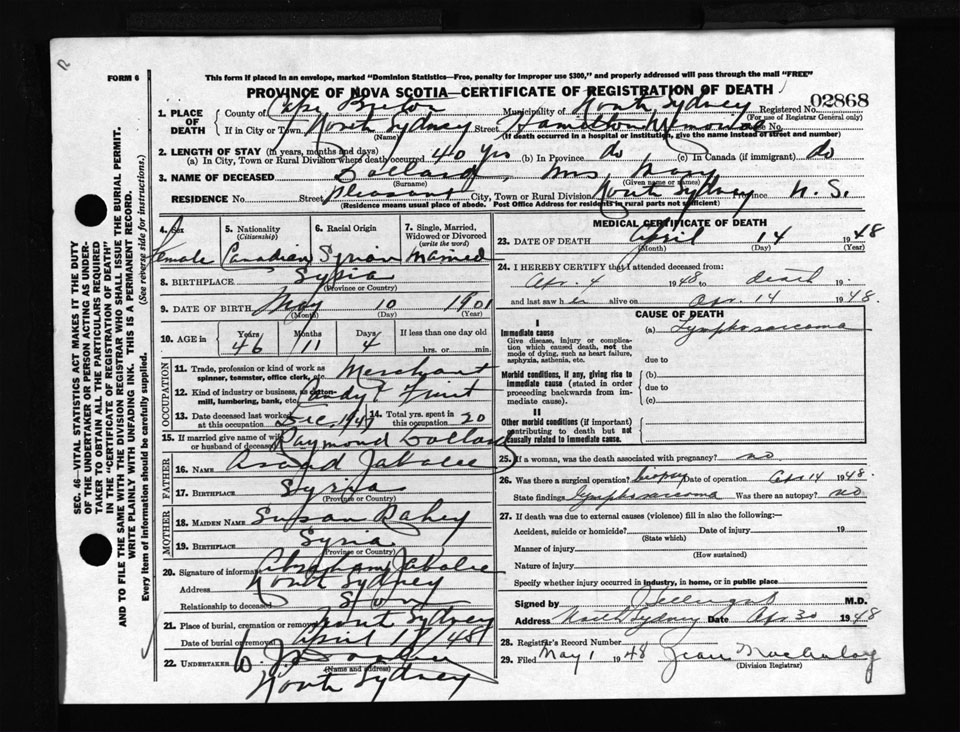 FORM 6
This form if placed in an envelope, marked "Dominion Statistics—Free, penalty for improper use $300," and properly addressed will pass through the mail "FREE"
PROVINCE OF NOVA SCOTIA—CERTIFICATE OF REGISTRATION OF DEATH
1. PLACE OF DEATH County of Cape Breton Municipality of North Sydney Registered No. 02868
(For use of Registrar General only)
If in City or Town North Sydney Street Hamilton Memorial House No.
(Name) (If death occurred in a hospital or institution, give the name instead of street and number)
2. LENGTH OF STAY (in years, months and days)
(a) In City, Town or Rural Division where death occurred 40 yrs (b) In Province do (c) In Canada (if immigrant) do
3. NAME OF DECEASED Mrs Mary
(Surname) (Given name or names)
RESIDENCE No. Street Pleasant City, Town or Rural Division North Sydney Province N.S.
(Residence means usual place of abode. Post Office Address for residents in rural parts not sufficient)
4. Sex Female
5. Nationality (Citizenship) Canadian
6. Racial Origin Syrian
7. Single, Married, Widowed or Divorced (write the word) Married
8. BIRTHPLACE Syria
(Province or Country)
9. DATE OF BIRTH May 10 1901
(Month) (Day) (Year)
10. AGE in Years 46 Months 11 Days 4 If less than one day old hrs. or min.
OCCUPATION
11. Trade, profession or kind of work as spinner, teamster, office clerk, etc. Merchant
12. Kind of industry or business, as cotton-mill, lumbering, bank, etc. Candy & Fruit
13. Date deceased last worked at this occupation Dec. 1947 14. Total yrs. spent in 20
15. If married give name of wife or husband of deceased Raymond
FATHER
16. NAME
17. BIRTHPLACE Syria
(Province or Country)
MOTHER
18. MAIDEN NAME Susan Rahey
19. BIRTHPLACE Syria
(Province or Country)
20. Signature of informant Abraham Jabalee
Address North Sydney
Relationship to deceased Son
21. Place of burial, cremation or removal North Sydney
Date of burial or removal April 17/48
22. UNDERTAKER W. J.
(Name and address)
North Sydney
MEDICAL CERTIFICATE OF DEATH
23. DATE OF DEATH April 14 1948
(Month) (Day) (Year)
24. I HEREBY CERTIFY that I attended deceased from:
Apr. 4 1948 to death 19
and last saw her alive on Apr. 14 1948.
CAUSE OF DEATH
I
Immediate cause (a) Lymphosarcoma
Give disease, injury or complication which caused death, not the mode of dying, such as heart failure, asphyxia, asthenia, etc.
due to
Morbid conditions, if any, giving rise to immediate cause (stated in order proceeding backwards from immediate cause).
(b)
due to
(c)
II
Other morbid conditions (if important) contributing to death but not causally related to immediate cause.
25. If a woman, was the death associated with pregnancy? no
26. Was there a surgical operation? biopsy Date of operation Apr 14 1948.
State findings lymphosarcoma Was there an autopsy? no
27. If death was due to external causes (violence) fill in also the following:—
Accident, suicide or homicide? Date of injury 19
(State which)
Manner of injury
(How sustained)
Nature of injury
Specify whether injury occurred in industry, in home, or in public place
Signed by M.D.
Address North Sydney Date Apr 30 1948
28. Registrar's Record Number
29. Filed May 1 1948 Jean
(Division Registrar)
SEC. 46—VITAL STATISTICS ACT MAKES IT THE DUTY
OF THE UNDERTAKER OR PERSON ACTING AS UNDER-
TAKER TO OBTAIN ALL THE PARTICULARS REQUIRED
IN THE "CERTIFICATE OF REGISTRATION OF DEATH"
AND TO FILE THE SAME WITH THE DIVISION REGISTRAR WHO SHALL ISSUE THE BURIAL PERMIT.
WRITE PLAINLY WITH UNFADING INK. THIS IS A PERMANENT RECORD.
Every item of information should be carefully supplied. (See reverse side for instructions.)